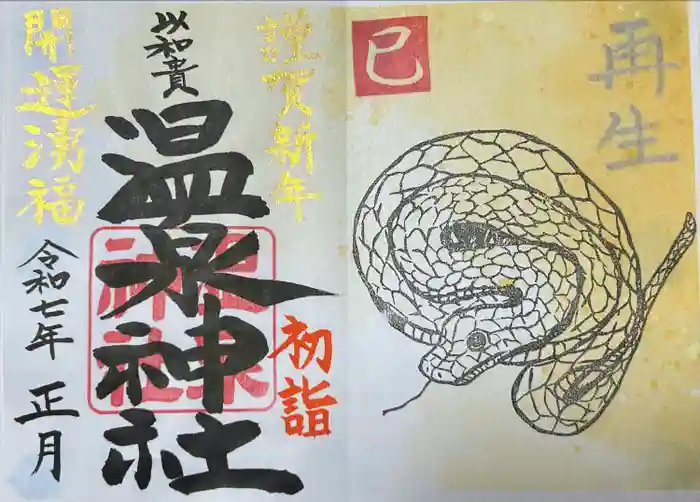 再生
巳
謹賀新年
初詣
以和貴
温泉神社
温泉神社
開運湧福
令和七年 正月